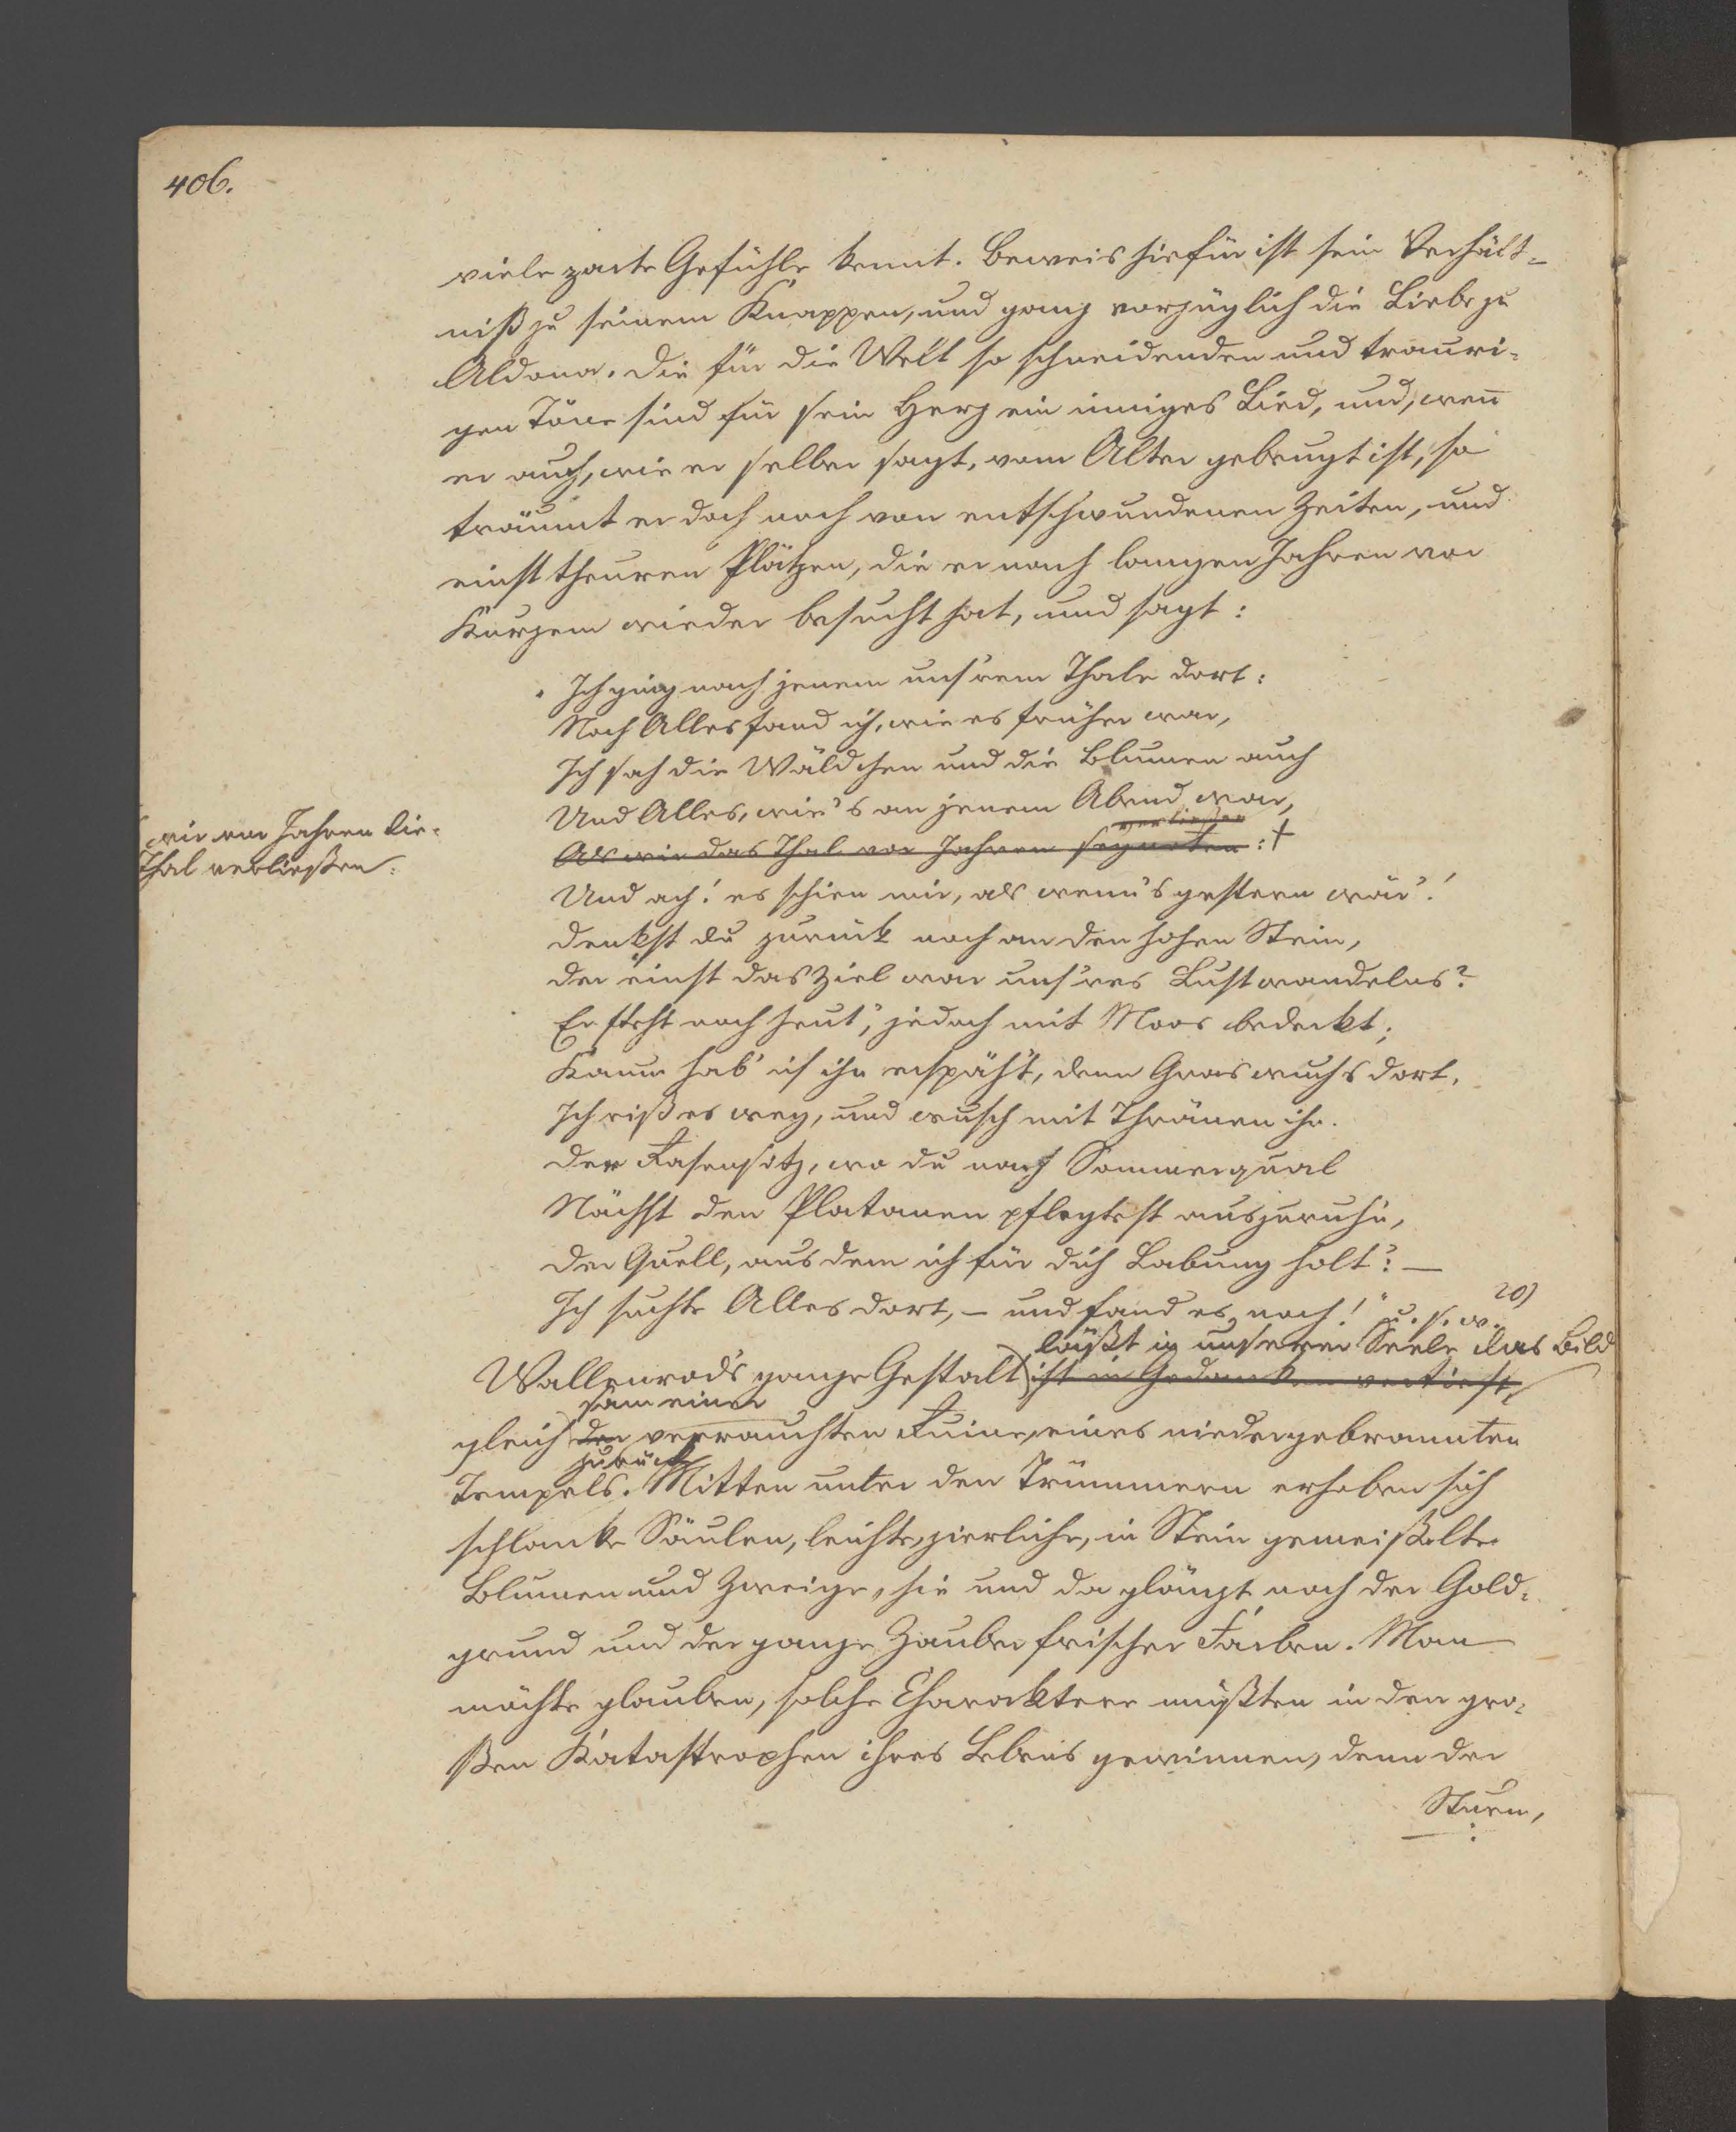 406.
viele zarte Gefühle kennt. Beweis hiefür ist sein Verhält-
niß zu seinem Knappen, und ganz vorzüglich die Liebe zu
Aldona. Die für die Welt so schneidenden und trauri-
gen Töne sind für sein Herz ein inniges Lied, und, wen̄
er auch, wie er selber sagt, vom Alter gebeugt ist, so
träumt er doch noch von entschwundenen Zeiten, und
einst theuren Plätzen, die er nach langen Jahren vor
Kurzem wieder besucht hat, und sagt:
„Ich ging nach jenem uns'rem Thale dort:
Noch Alles fand ich, wie es früher war,
Ich sah die Wäldchen und die Blumen auch
Und Alles, wie's an jenem Abend war,
wie vor Jahren die-
Thal verließen.
verließen
Als wir das Thal vor Jahren segneten :+
Und ach! es schien mir, als wenn's gestern wär'!
Denkst du zurück noch an den hohen Stein,
Der einst das Ziel war uns'res Lustwandelns?
Er steht noch heut', jedoch mit Moos bedeckt;
Kaum hab' ich ihn erspäht, denn Gras wuchs dort.
Ich riß es weg, und wusch mit Thränen ihn.
Der Rasensitz, wo du nach Sommerqual
Nächst den Platanen pflegtest auszuruhn,
Der Quell, aus dem ich für dich Labung holt'? —
Ich suchte Alles dort, – und fand es noch!" u. s. w. 20)
läßt in unserer Seele das Bild
Wallenrod's ganze Gestalt ist in Gedanken vertieft,
sam einer
gleich den verrauchten Ruine, eines niedergebrannten
zurück
Tempels. Mitten unter den Trümmern erheben sich
schlanke Säulen, leichte, zierliche, in Stein gemeißelte
Blumen und Zweige, hie und da glänzt noch der Gold-
grund und der ganze Zauber frischer Farben. Man
möchte glauben, solche Charaktere müßten in den gro-
ßen Katastrophen ihres Lebens gewinnen, denn der
Sturm,